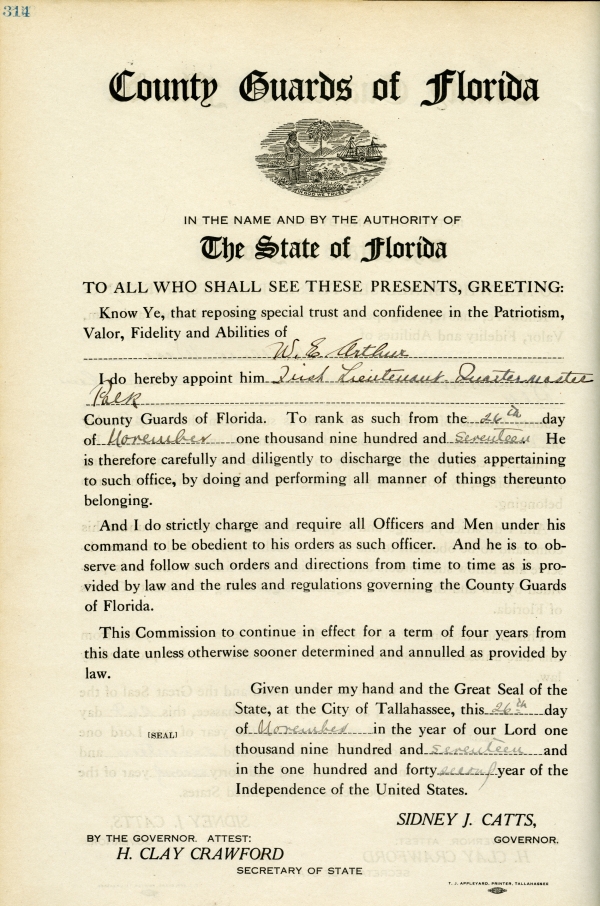 314
County Guards of Florida
IN THE NAME AND BY THE AUTHORITY OF
The State of Florida
TO ALL WHO SHALL SEE THESE PRESENTS, GREETING:
Know Ye, that reposing special trust and confidence in the Patriotism,
Valor, Fidelity and Abilities of
W. E. Arthur
I do hereby appoint him First Lieutenant Quartermaster
Polk
County Guards of Florida. To rank as such from the 26th day
of November one thousand nine hundred and seventeen He
is therefore carefully and diligently to discharge the duties appertaining
to such office, by doing and performing all manner of things thereunto
belonging.
And I do strictly charge and require all Officers and Men under his
command to be obedient to his orders as such officer. And he is to ob-
serve and follow such orders and directions from time to time as is pro-
vided by law and the rules and regulations governing the County Guards
of Florida.
This Commission to continue in effect for a term of four years from
this date unless otherwise sooner determined and annulled as provided by
law.
Given under my hand and the Great Seal of the
State, at the City of Tallahassee, this 26th day
of November in the year of our Lord one
[SEAL]
thousand nine hundred and seventeen and
in the one hundred and forty second year of the
Independence of the United States.
SIDNEY J. CATTS,
BY THE GOVERNOR. ATTEST: GOVERNOR.
H. CLAY CRAWFORD
SECRETARY OF STATE
T. J. APPLEYARD, PRINTER, TALLAHASSEE